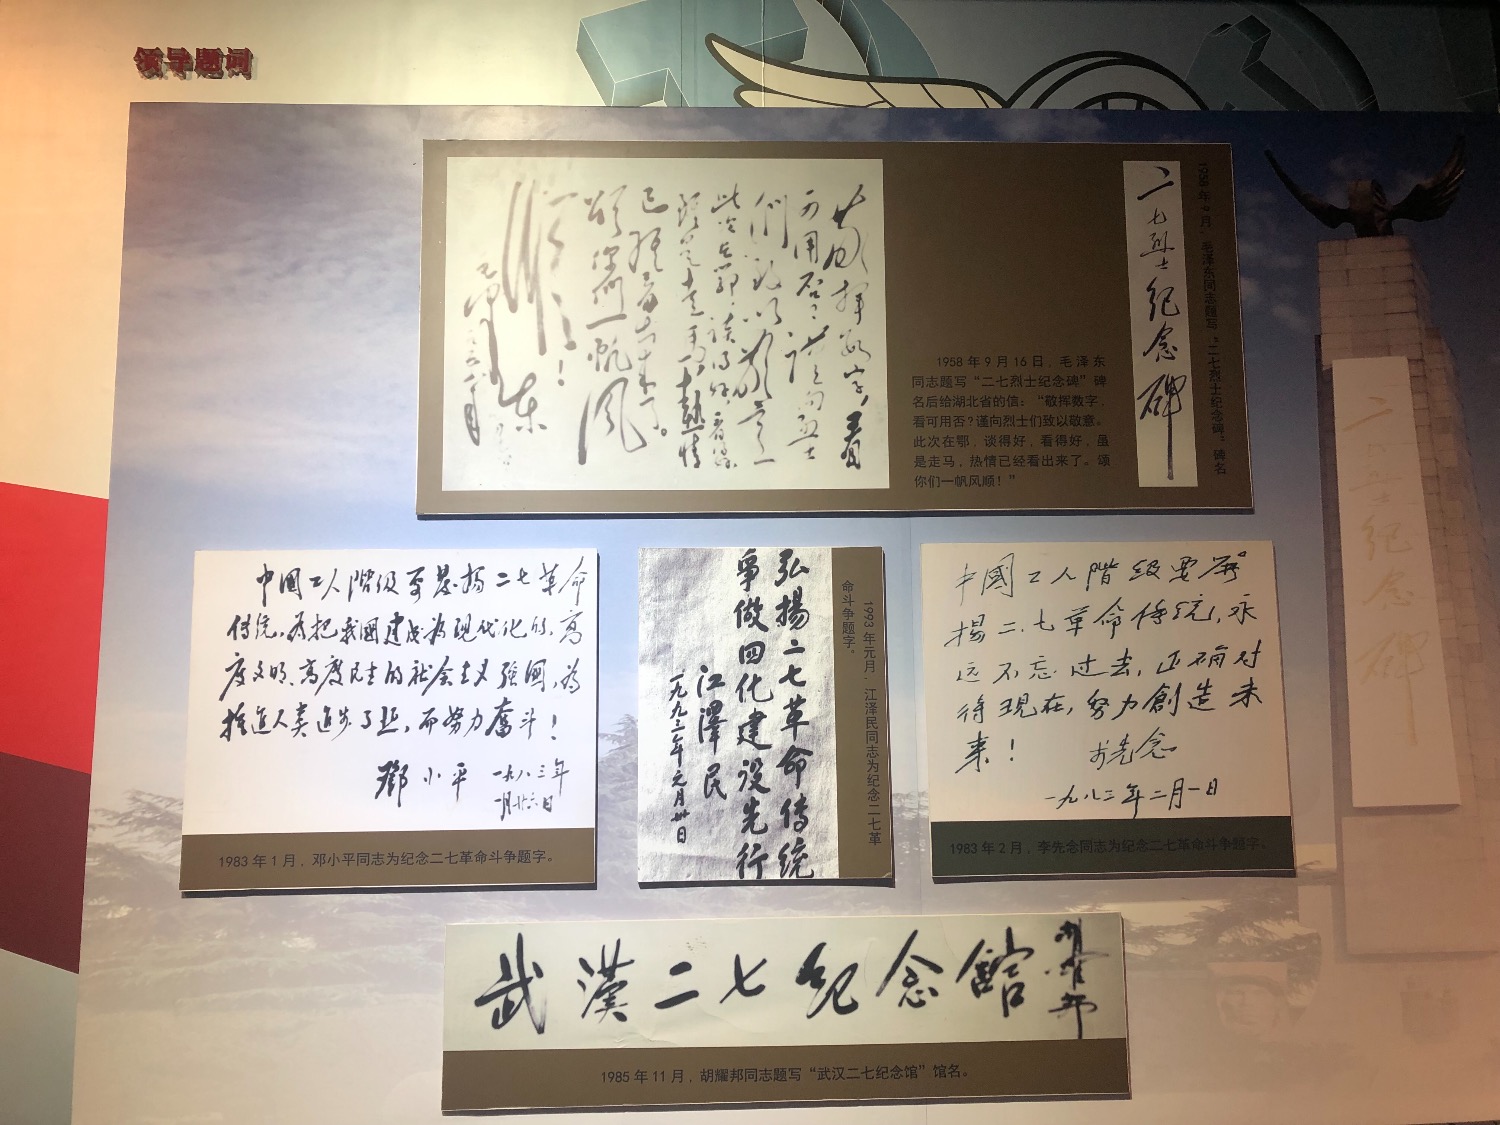 领导题词
敬挥数字，看
可用否？谨向烈士
们致以敬意。
此次在鄂，谈得好，看得好，
虽是走马，热情
已经看出来了。
颂你们一帆风
顺！
毛泽东
1958 年 9 月 16 日，毛泽东
同志题写“二七烈士纪念碑”碑
名后给湖北省的信：“敬挥数字，
看可用否？谨向烈士们致以敬意。
此次在鄂，谈得好，看得好，虽
是走马，热情已经看出来了。颂
你们一帆风顺！”
二七烈士纪念碑
1958年9月，毛泽东同志题写“二七烈士纪念碑”碑名
二七烈士纪念碑
中國工人階级要发揚二七革命
传统，为把我國建成为现代化的、高
度文明、高度民主的社会主义强國，为
推进人类进步事业，而努力奮斗！
鄧小平 一九八三年
一月廿六日
1983 年 1 月，邓小平同志为纪念二七革命斗争题字。
弘揚二七革命传统
爭做四化建设先行
江澤民
一九九三年元月卅日
1993 年元月，江泽民同志为纪念二七革
命斗争题字。
中國工人階级要發
揚二、七革命传统，永
远不忘过去，正确对
待现在，努力創造未
来！ 李先念
一九八三年二月一日
1983 年 2 月，李先念同志为纪念二七革命斗争题字。
武漢二七纪念館 胡耀邦
1985 年 11 月，胡耀邦同志题写“武汉二七纪念馆”馆名。